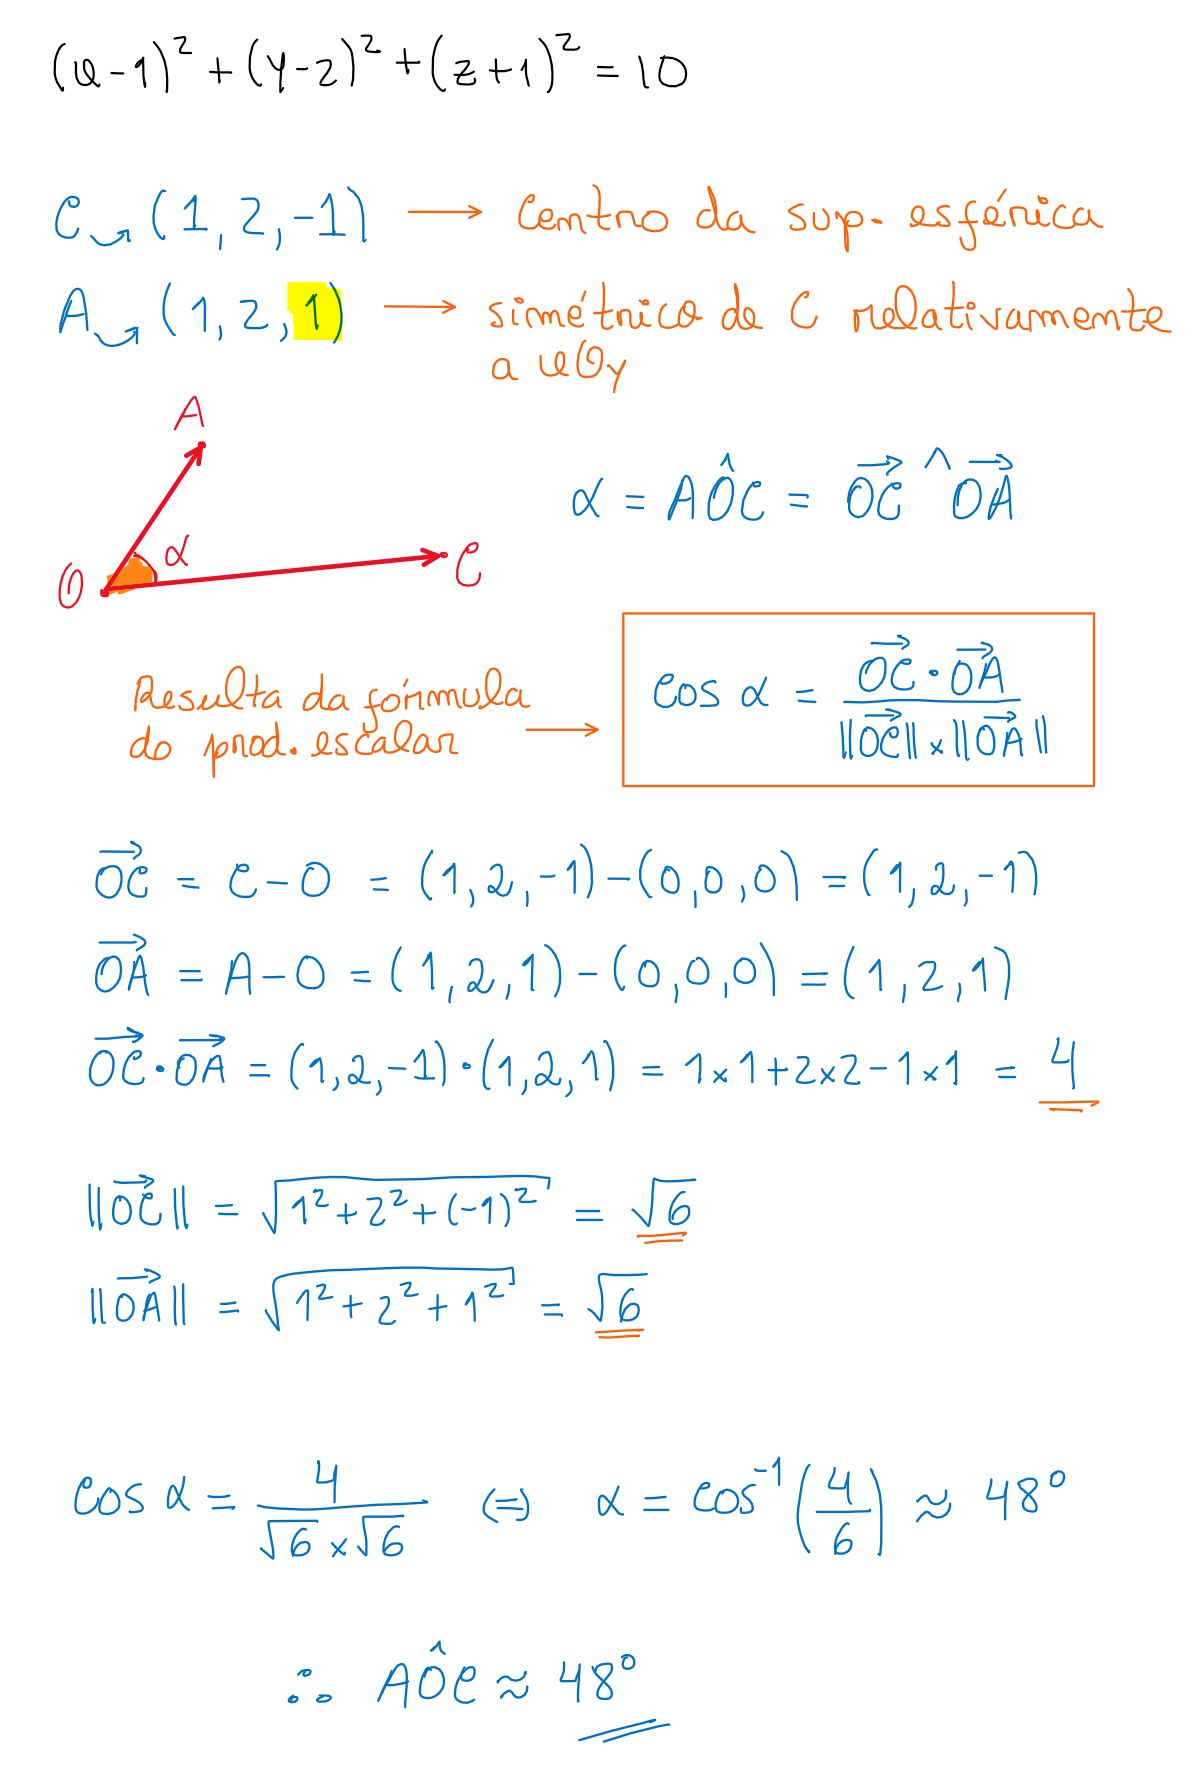 (x-1)² + (y-2)² + (z+1)² = 10
C ⤻ (1, 2, -1) → Centro da sup. esférica
A ⤻ (1, 2, 1) → simétrico de C relativamente
a xOy
A
α
O
C
α = AÔC = OC⃗ ^ OA⃗
Resulta da fórmula
do prod. escalar →
cos α = (OC⃗ · OA⃗) / (||OC⃗|| × ||OA⃗||)
OC⃗ = C - O = (1, 2, -1) - (0, 0, 0) = (1, 2, -1)
OA⃗ = A - O = (1, 2, 1) - (0, 0, 0) = (1, 2, 1)
OC⃗ · OA⃗ = (1, 2, -1) · (1, 2, 1) = 1×1+2×2-1×1 = 4
||OC⃗|| = √(1²+2²+(-1)²) = √6
||OA⃗|| = √(1²+2²+1²) = √6
cos α = 4/(√6 × √6) (=) α = cos⁻¹(4/6) ≈ 48°
∴ AÔC ≈ 48°